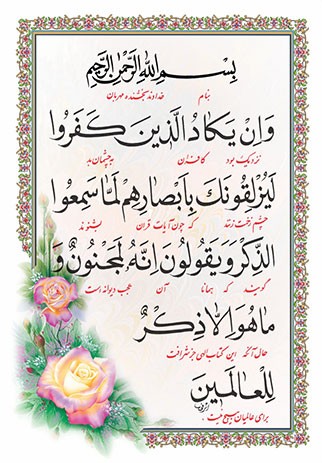 بسم الله الرحمن الرحیم
بنام خداوند بخشنده مهربان
وَاِنْ یَکادُ الَّذینَ کَفَرُوا
نزدیک بود کافران به چشمان بد
لَیُزْلِقُونَکَ بِاَبْصارِهِمْ لَمّا سَمِعُوا
چشم زخمت زنند که چون آیات قرآن بشنوند
الذِّکْرَ وَ یَقُولُونَ اِنَّهُ لَمَجْنُونٌ وَ
گویند که همانا آن عجب دیوانه است
ما هُوَ اِلاّ ذِکْرٌ
حال آنکه این کتاب الهی جز شرافت
لِلْعالَمینَ
برای عالمیان هیچ نیست